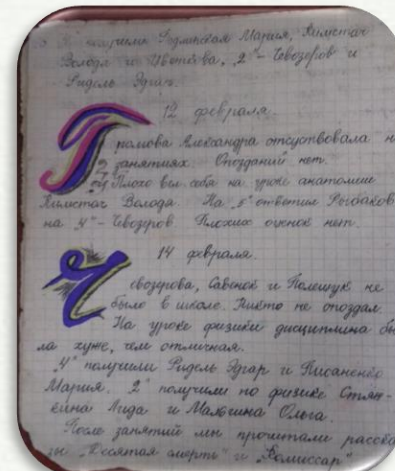 5" получили Мария, Хилистач
Володя и Цветкова, 2" - Чевозеров и
Ридель Эдгар.
12 февраля.
Громова Александра отсутствовала на
занятиях. Опозданий нет.
Плохо вел себя на уроке анатомии
Хилистач Володя. На „5" ответил Рыбаков
на „4" - Чевозеров. Плохих оценок нет.
14 февраля.
Чевозерова, Савенок и Полещук не
было в школе. Никто не опоздал.
На уроке физики дисциплина бы-
ла хуже, чем отличная.
„4" получили Ридель Эдгар и Писаненко
Мария. 2" получили по физике
Лида и Малыгина Ольга.
После занятий мы прочитали расска-
зы „Десятая смерть" и „Комиссар"